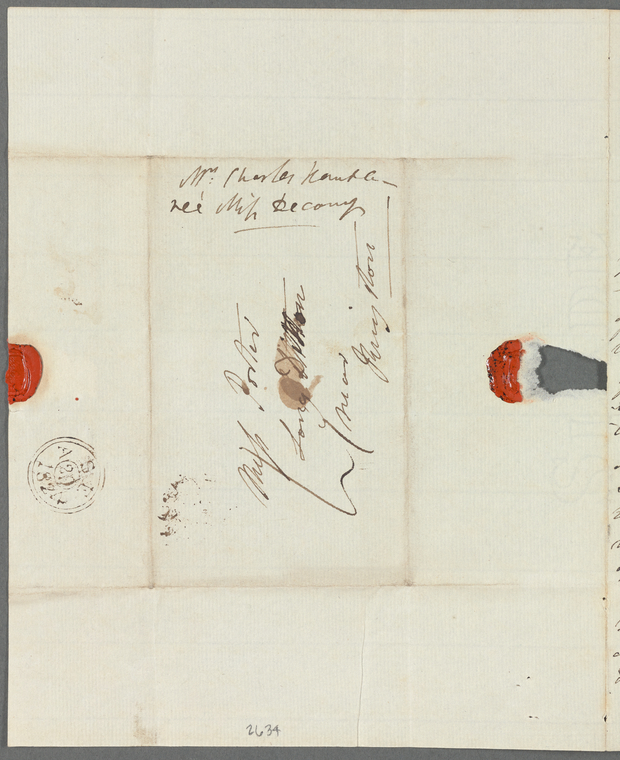 Mrs. Charles Kemble
née Miss Decamp
Miss Porter
Long Ditton
near
Kingston
2634